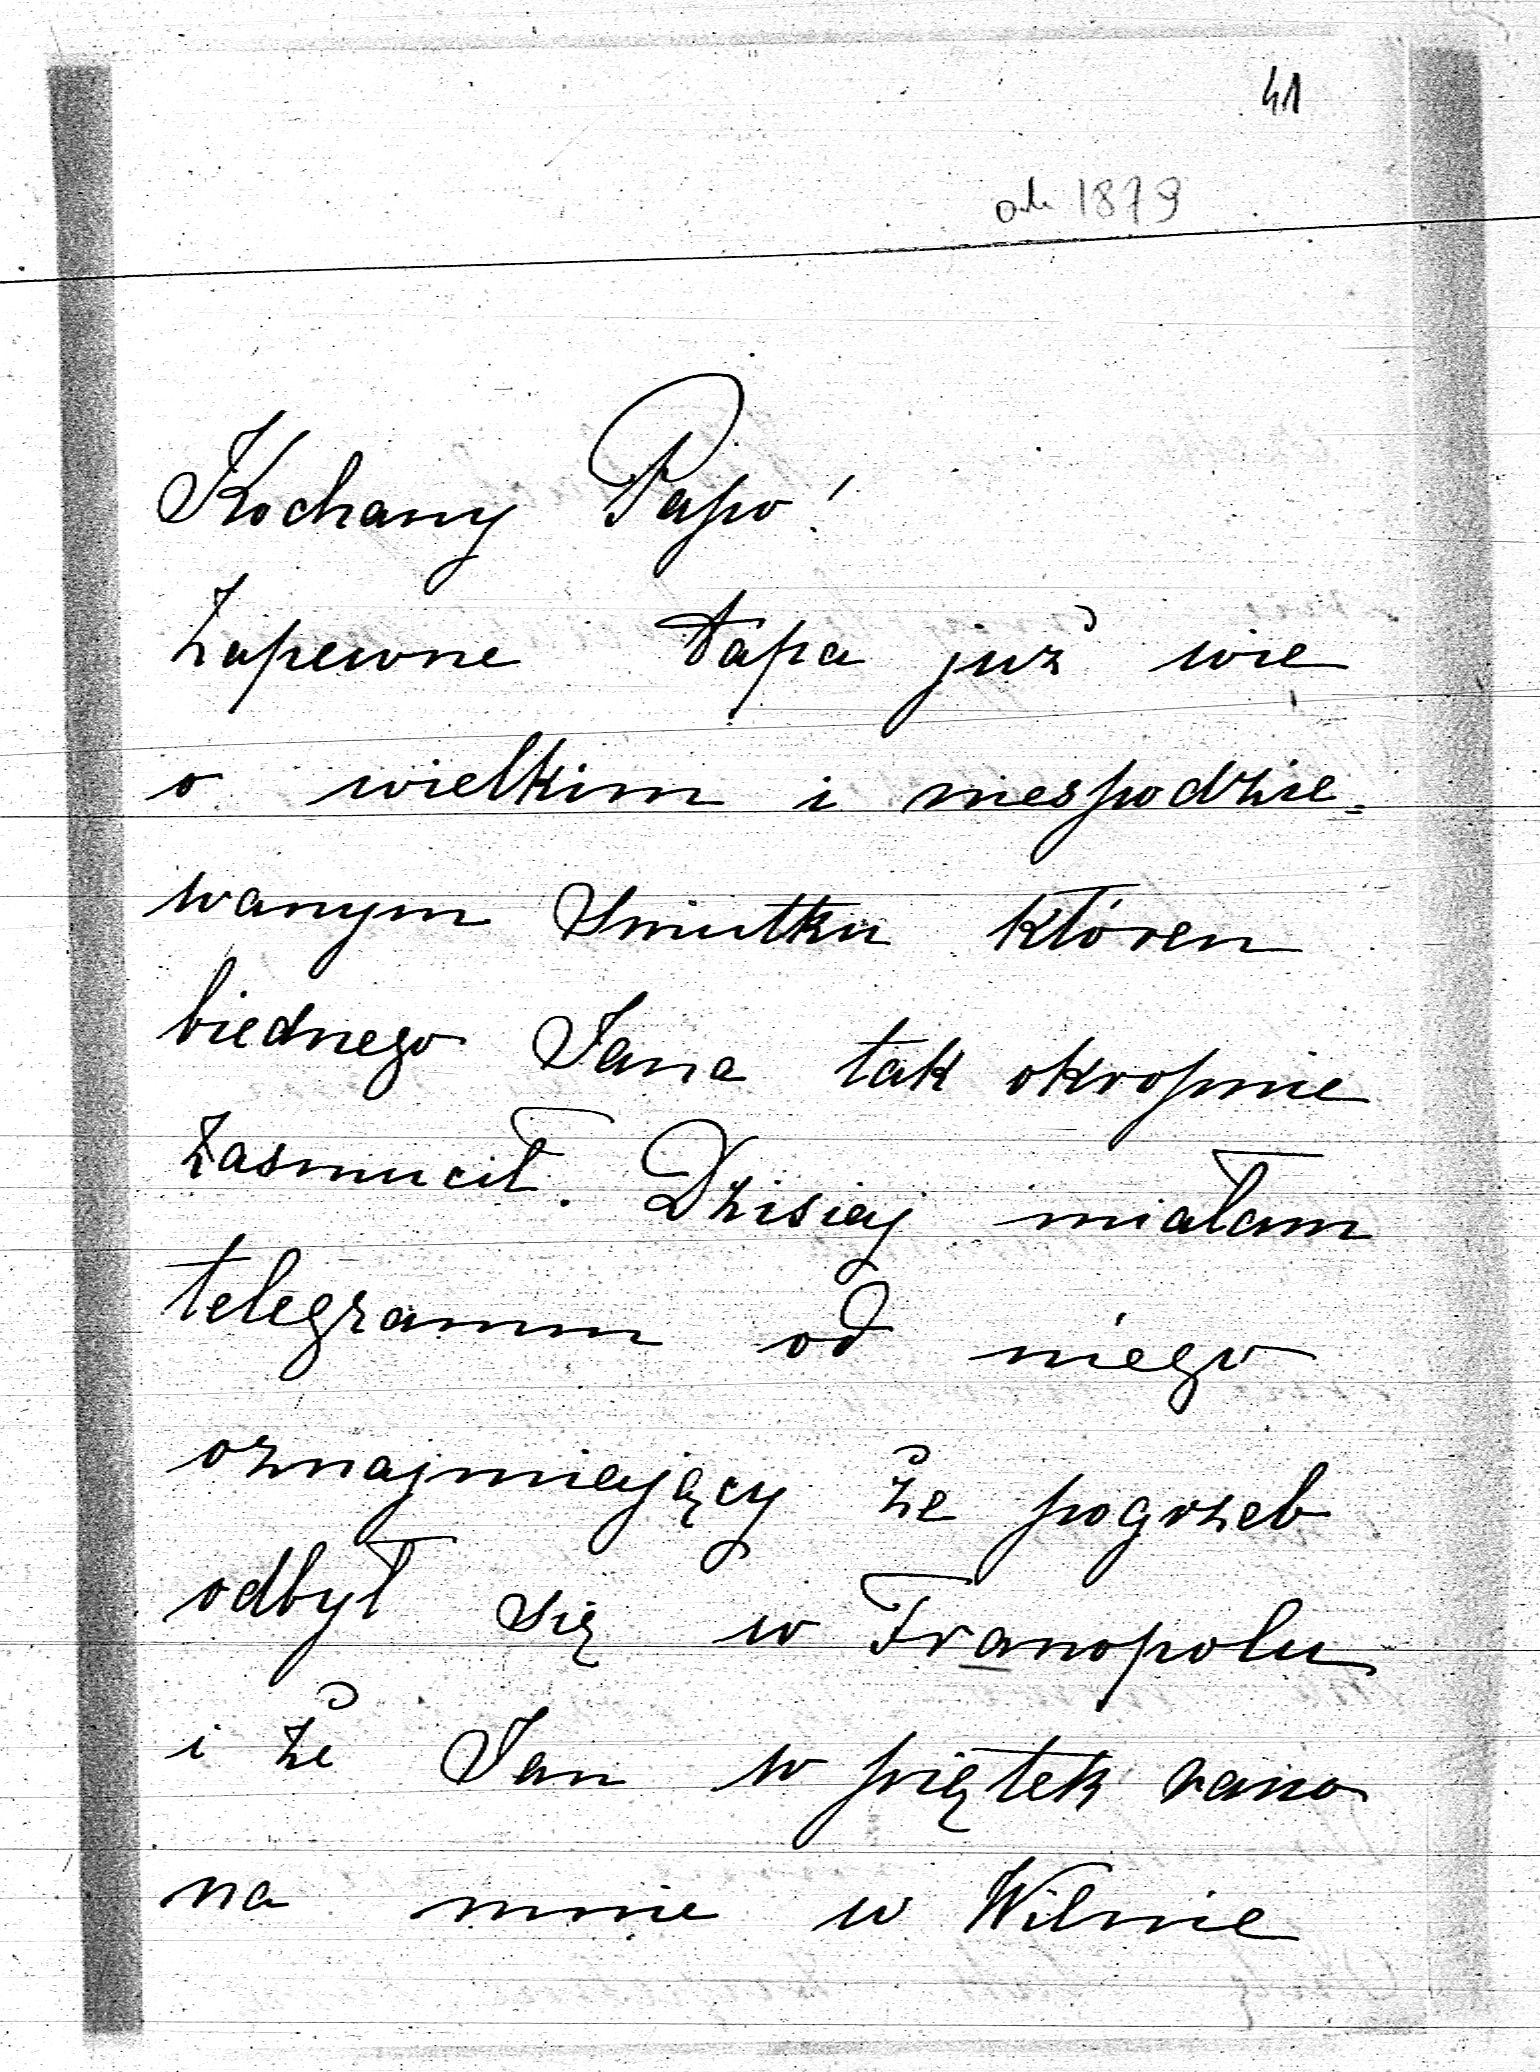 41
ok 1879
Kochany Papo!
Zapewne Papa już wie
o wielkim i niespodzie=
wanym smutku któren
biednego Jana tak okropnie
zasmucił. Dzisiaj miałam
telegramm od niego
oznajmiający że pogrzeb
odbył się w Franopolu
i że Jan w piątek rano
na mnie w Wilnie